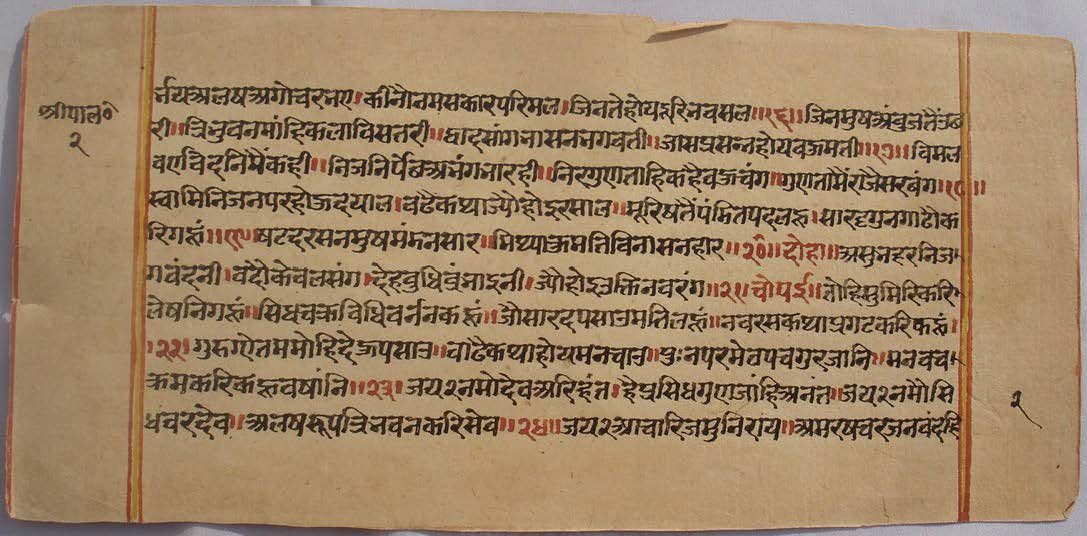 श्रीपाल०
२
र्नयअलषअगोचरनए। कीनौनमसकारपरिमल। जिनतेहोय नवसल॥१६॥ जिनमुषअंबुजतैं
री॥ त्रिभुवनमांहिकलाविसतरी॥ द्वादसांगनासनभगवती॥ जासप्रसन्नहोयवऊमती॥१७॥ विमल
कही॥ निरगुणताहिकहैवऊचंग॥ गुणतामैंराजैसरवंग॥१८॥
स्वामिनिजनपरहोऊदयाल। वढैकथाज्यौहोइरसाल॥ मूरिषतैंपंडितपदलह्न॥ सारद गुनगाढौक
रिगहूं॥१९॥ षटदरसनमुषमंडनसार॥ मिथ्याऊमतिविनासनहार॥२०॥ दोहा॥ असुभहरनिज
गवंदनी। वंदौकेवलसंग। देहवुधि नी। ज्यौहोइउक्तिनवरंग॥२१॥ चौपई॥ तोहिसुमिरिकरि
लेषनिगहूं॥ सिधचक्रविधिवर्ननकहूं॥ जौसारदपसाउमतिलहूं॥ नवरसकथाप्रगटकरिकहूं।
॥२२॥ गुरुगोतममोहिदेऊपसाउ॥ वाढैकथाहोयमनचाउ॥ पुःनपरमेवपचगुरजानि॥ मनवच
क्रमकरिकह्नवषांनि॥२३॥ जय२नमोदेवअरिहंत॥ हैप्रसिधगुणजांहिअनंत॥ जय२नमौसि
धवरदेव॥ अलषरूपत्रिभवनकरिसेव॥२४॥ जय२आचारिजमुनिराय॥ अमरषचरजनवंदहि
२